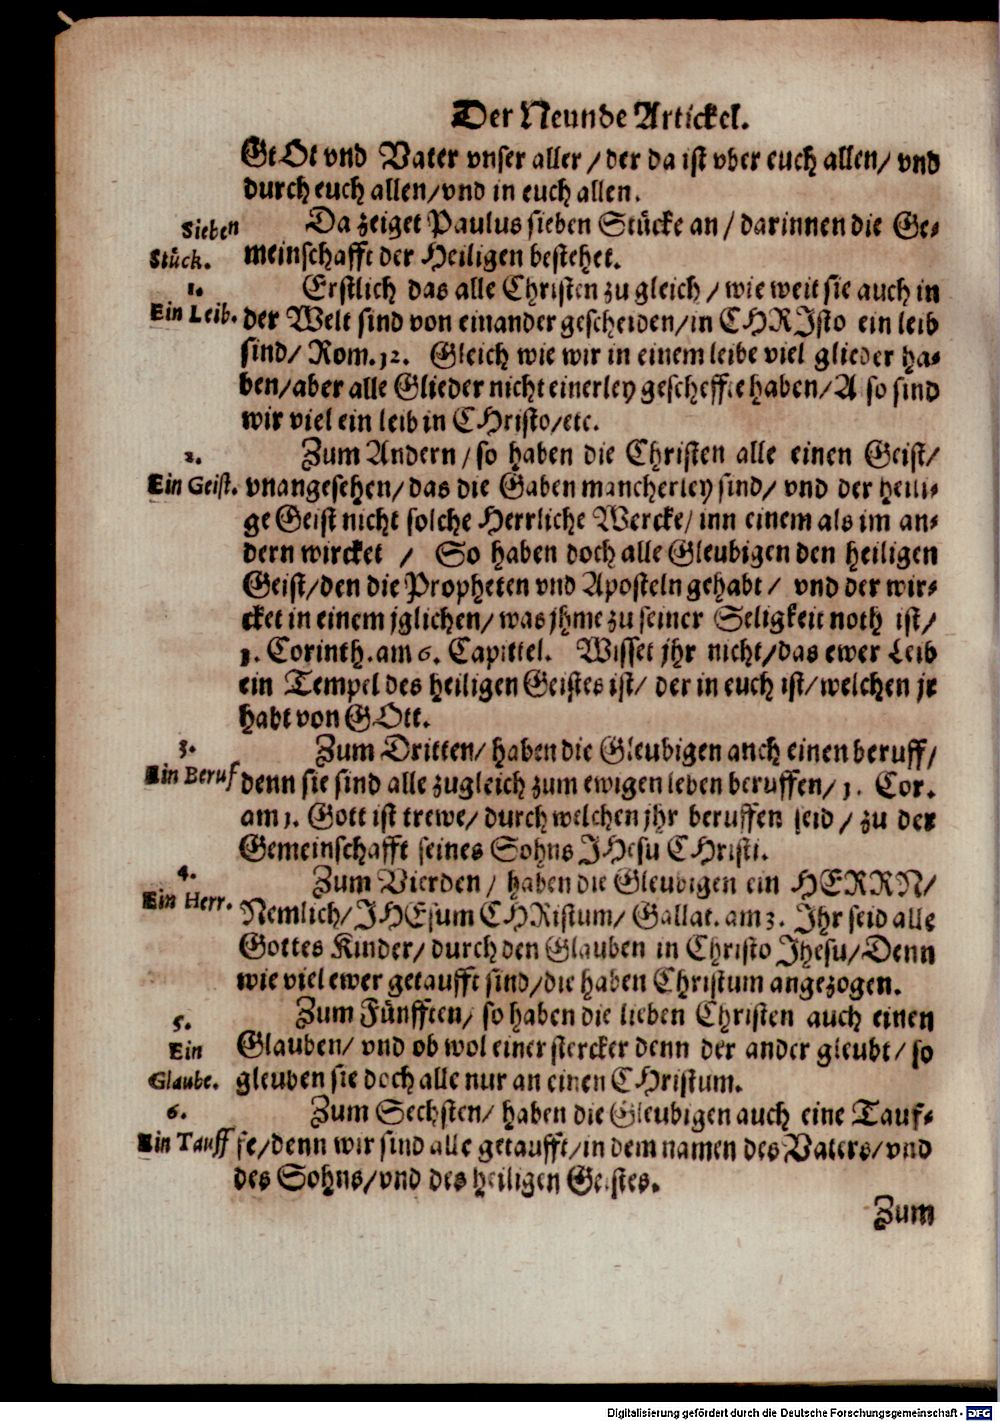 Der Neunde Artickel.
GOtt vnd Vater vnser aller / der da ist vber euch allen / vnd
durch euch allen / vnd in euch allen.
Sieben
Da zeiget Paulus sieben Stücke an / darinnen die Ge-
Stück.
meinschafft der Heiligen bestehet.
1.
Erstlich das alle Christen zu gleich / wie weit sie auch in
Ein Leib.
der Welt sind von einander gescheiden / in CHRIsto ein leib
sind / Rom. 12. Gleich wie wir in einem leibe viel glieder ha-
ben / aber alle Glieder nicht einerley gescheffte haben / Also sind
wir viel ein leib in CHristo / etc.
2.
Zum Andern / so haben die Christen alle einen Geist /
Ein Geist.
vnangesehen / das die Gaben mancherley sind / vnd der heili-
ge Geist nicht solche Herrliche Wercke / inn einem als im an-
dern wircket / So haben doch alle Gleubigen den heiligen
Geist / den die Propheten vnd Aposteln gehabt / vnd der wir-
cket in einem jglichen / was jhme zu seiner Seligkeit noth ist /
1. Corinth. am 6. Capittel. Wisset jhr nicht / das ewer Leib
ein Tempel des heiligen Geistes ist / der in euch ist / welchen jr
habt von GOtt.
3.
Zum Dritten / haben die Gleubigen anch einen beruff /
Ein Beruf
denn sie sind alle zugleich zum ewigen leben beruffen / 1. Cor.
am 1. Gott ist trewe / durch welchen jhr beruffen seid / zu der
Gemeinschafft seines Sohns JHesu CHristi.
4.
Zum Vierden / haben die Gleubigen ein HERRN /
Ein Herr.
Nemlich / JHEsum CHRistum / Gallat. am 3. Ihr seid alle
Gottes Kinder / durch den Glauben in Christo Jhesu / Denn
wie viel ewer getaufft sind / die haben Christum angezogen.
5.
Zum Fünfften / so haben die lieben Christen auch einen
Ein
Glauben / vnd ob wol einer stercker denn der ander gleubt / so
Glaube.
gleuben sie doch alle nur an einen CHristum.
6.
Zum Sechsten / haben die Gleubigen auch eine Tauf-
Ein Tauff
fe / denn wir sind alle getaufft / in dem namen des Vaters / vnd
des Sohns / vnd des heiligen Geistes.
Zum
Digitalisierung gefördert durch die Deutsche Forschungsgemeinschaft - DFG